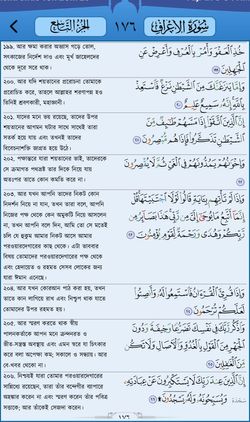 سُورَةُ الأَعْرَافِ
١٧٦
الجُزْءُ التَّاسِعُ
خُذِ ٱلْعَفْوَ وَأْمُرْ بِٱلْعُرْفِ وَأَعْرِضْ عَنِ
ٱلْجَٰهِلِينَ ١٩٩
১৯৯. আর ক্ষমা করার অভ্যাস গড়ে তোল,
সৎকাজের নির্দেশ দাও এবং মূর্খ জাহেলদের
থেকে দূরে সরে থাক।
وَإِمَّا يَنزَغَنَّكَ مِنَ ٱلشَّيْطَٰنِ نَزْغٌ فَٱسْتَعِذْ
بِٱللَّهِ إِنَّهُۥ سَمِيعٌ عَلِيمٌ ٢٠٠
২০০. আর যদি শয়তানের প্ররোচনা তোমাকে
প্ররোচিত করে, তাহলে আল্লাহর শরণাপন্ন হও
তিনিই শ্রবণকারী, মহাজ্ঞানী।
إِنَّ ٱلَّذِينَ ٱتَّقَوْا۟ إِذَا مَسَّهُمْ طَٰٓئِفٌ مِّنَ
ٱلشَّيْطَٰنِ تَذَكَّرُوا۟ فَإِذَا هُم مُّبْصِرُونَ ٢٠١
২০১. যাদের মনে ভয় রয়েছে, তাদের উপর
শয়তানের আগমন ঘটার সাথে সাথেই তারা
সতর্ক হয়ে যায় এবং তখনই তাদের
বিবেচনাশক্তি জাগ্রত হয়ে উঠে।
وَإِخْوَٰنُهُمْ يَمُدُّونَهُمْ فِى ٱلْغَىِّ ثُمَّ لَا يُقْصِرُونَ
٢٠٢
২০২. পক্ষান্তরে যারা শয়তানের ভাই, তাদেরকে
সে ক্রমাগত পথভ্রষ্ট তার দিকে নিয়ে যায়
অতঃপর তাতে কোন কমতি করে না।
وَإِذَا لَمْ تَأْتِهِم بِـَٔايَةٍ قَالُوا۟ لَوْلَا ٱجْتَبَيْتَهَا قُلْ
إِنَّمَآ أَتَّبِعُ مَا يُوحَىٰٓ إِلَىَّ مِن رَّبِّى هَٰذَا بَصَآئِرُ مِن
رَّبِّكُمْ وَهُدًى وَرَحْمَةٌ لِّقَوْمٍ يُؤْمِنُونَ ٢٠٣
২০৩. আর যখন আপনি তাদের নিকট কোন
নিদর্শন নিয়ে না যান, তখন তারা বলে, আপনি
নিজের পক্ষ থেকে কেন অমুকটি নিয়ে আসলেন
না, তখন আপনি বলে দিন, আমি তো সে মতেই
চলি যে হুকুম আমার নিকট আসে আমার
পরওয়ারদেগারের কাছ থেকে। এটা ভাববার
বিষয় তোমাদের পরওয়ারদেগারের পক্ষ থেকে
এবং হেদায়েত ও রহমত সেসব লোকের জন্য
যারা ঈমান এনেছে।
وَإِذَا قُرِئَ ٱلْقُرْءَانُ فَٱسْتَمِعُوا۟ لَهُۥ وَأَنصِتُوا۟
لَعَلَّكُمْ تُرْحَمُونَ ٢٠٤
২০৪. আর যখন কোরআন পাঠ করা হয়, তখন
তাতে কান লাগিয়ে রাখ এবং নিশ্চুপ থাক যাতে
তোমাদের উপর রহমত হয়।
وَٱذْكُر رَّبَّكَ فِى نَفْسِكَ تَضَرُّعًا وَخِيفَةً وَدُونَ
ٱلْجَهْرِ مِنَ ٱلْقَوْلِ بِٱلْغُدُوِّ وَٱلْءَاصَالِ وَلَا تَكُن
مِّنَ ٱلْغَٰفِلِينَ ٢٠٥
২০৫. আর স্মরণ করতে থাক স্বীয়
পালনকর্তাকে আপন মনে ক্রন্দনরত ও
ভীত-সন্ত্রস্ত অবস্থায় এবং এমন স্বরে যা চিৎকার
করে বলা অপেক্ষা কম; সকালে ও সন্ধ্যায়। আর
বে-খবর থেকো না।
إِنَّ ٱلَّذِينَ عِندَ رَبِّكَ لَا يَسْتَكْبِرُونَ عَنْ عِبَادَتِهِۦ
وَيُسَبِّحُونَهُۥ وَلَهُۥ يَسْجُدُونَ ٢٠٦
২০৬. নিশ্চয়ই যারা তোমার পরওয়ারদেগারের
সান্নিধ্যে রয়েছেন, তারা তাঁর বন্দেগীর ব্যাপারে
অহঙ্কার করেন না এবং স্মরণ করেন তাঁর পবিত্র
সত্তাকে; আর তাঁকেই সেজদা করেন।
١٧٦